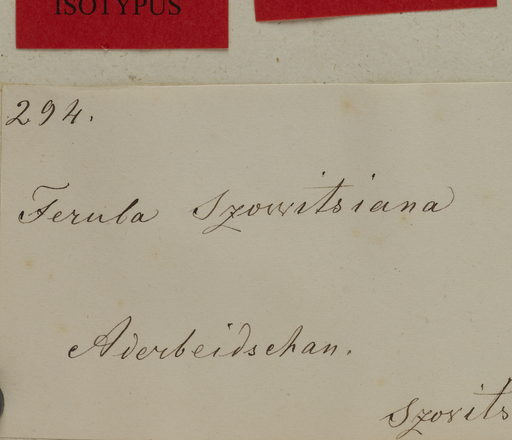 ISOTYPUS
294.
Ferula Szowitsiana
Aderbeidschan.
Szovits